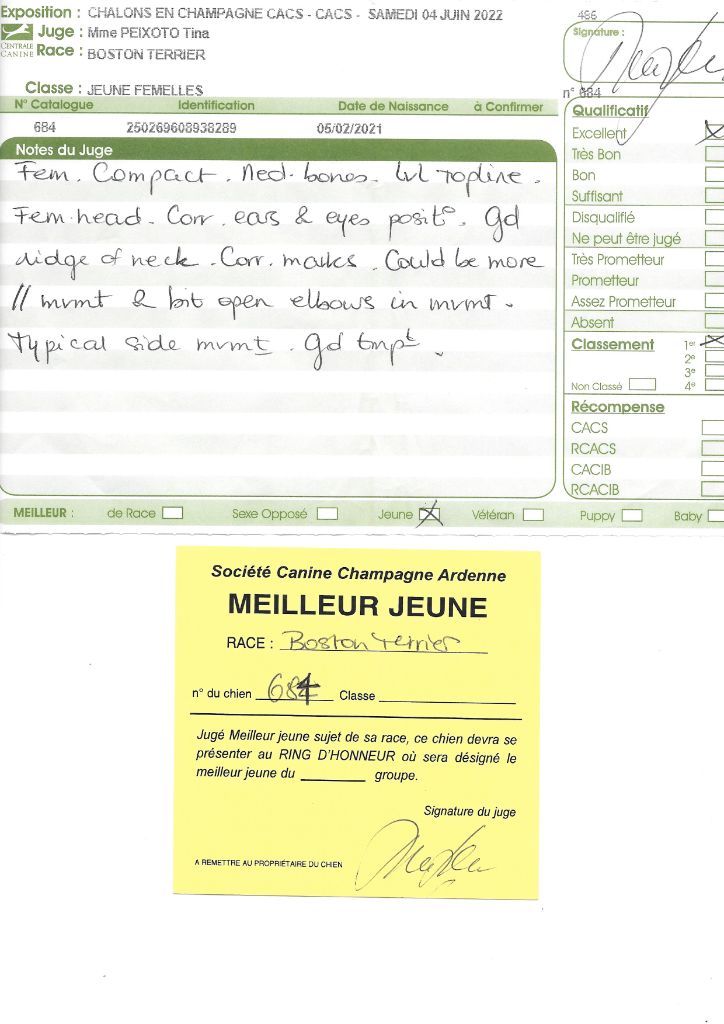 Exposition : CHALONS EN CHAMPAGNE CACS - CACS - SAMEDI 04 JUIN 2022
486
Juge : Mme PEIXOTO Tina
Signature :
CENTRALE CANINE
Race : BOSTON TERRIER
Classe : JEUNE FEMELLES
n° 684
N° Catalogue Identification Date de Naissance à Confirmer
684 250269608938289 05/02/2021
Notes du Juge
Fem. Compact. Med. bones. lvl topline.
Fem. head. Corr. ears & eyes posit°. Gd
ridge of neck. Corr. marks. Could be more
// mvmt & bit open elbows in mvmt.
Typical side mvmt. Gd tmpt.
Qualificatif
Excellent
Très Bon
Bon
Suffisant
Disqualifié
Ne peut être jugé
Très Prometteur
Prometteur
Assez Prometteur
Absent
Classement 1er
2e
3e
Non Classé 4e
Récompense
CACS
RCACS
CACIB
RCACIB
MEILLEUR : de Race Sexe Opposé Jeune Vétéran Puppy Baby
Société Canine Champagne Ardenne
MEILLEUR JEUNE
RACE : Boston Terrier
n° du chien 684 Classe
Jugé Meilleur jeune sujet de sa race, ce chien devra se
présenter au RING D'HONNEUR où sera désigné le
meilleur jeune du groupe.
Signature du juge
A REMETTRE AU PROPRIÉTAIRE DU CHIEN